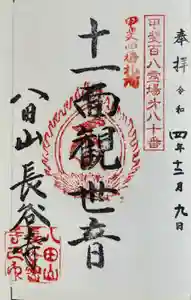 奉拝 令和四年十二月九日
甲斐百八霊場第八十番
甲斐四十番札所
十一面観世音
八田山 長谷寺
八田山